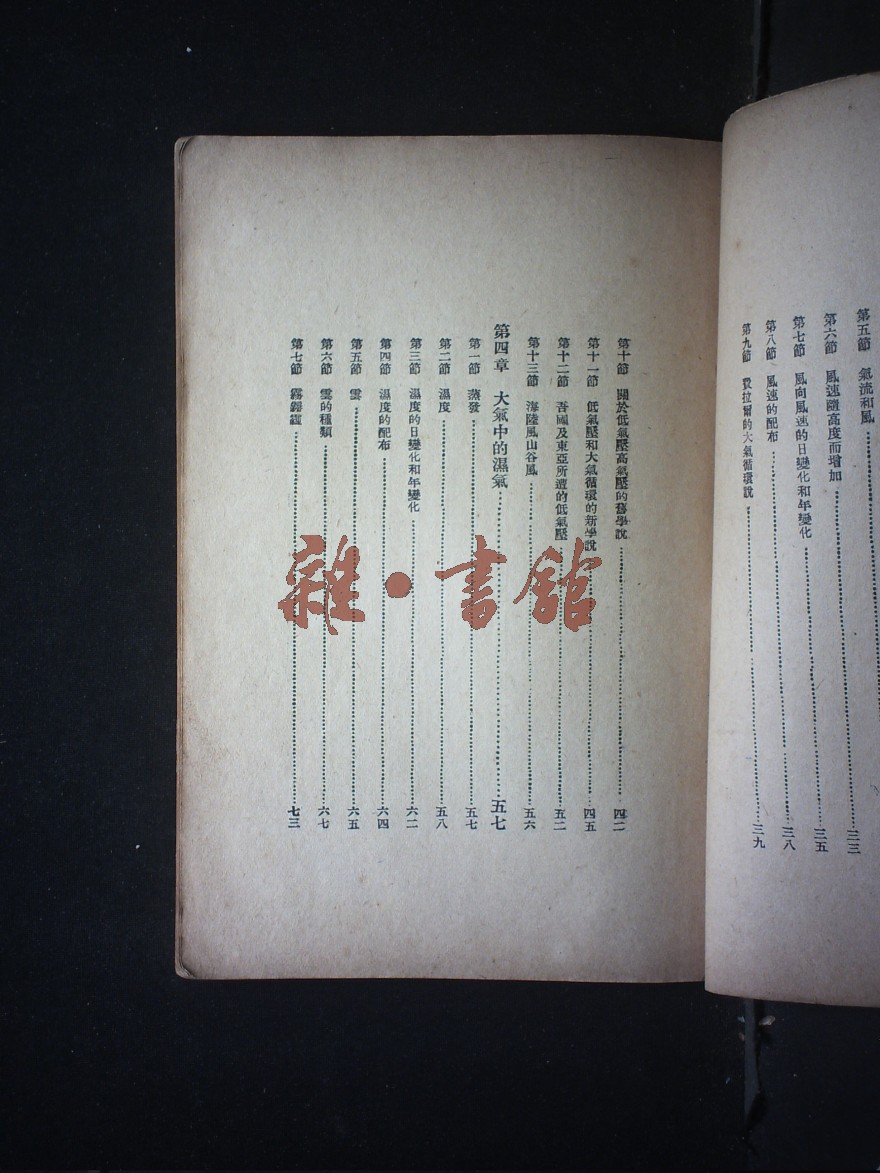 第五節　氣流和風……三三
第六節　風速隨高度而增加……三五
第七節　風向風速的日變化和年變化
第八節　風速的配布……三八
第九節　費拉爾的大氣循環說……三九
第十節　關於低氣壓高氣壓的舊學說……四二
第十一節　低氣壓和大氣循環的新學說……四五
第十二節　吾國及東亞所遭的低氣壓……五二
第十三節　海陸風山谷風……五六
第四章　大氣中的濕氣……五七
第一節　蒸發……五七
第二節　濕度……五八
第三節　濕度的日變化和年變化……六二
第四節　濕度的配布……六四
第五節　雲……六五
第六節　雲的種類……六七
第七節　霧……七三
雜·書館